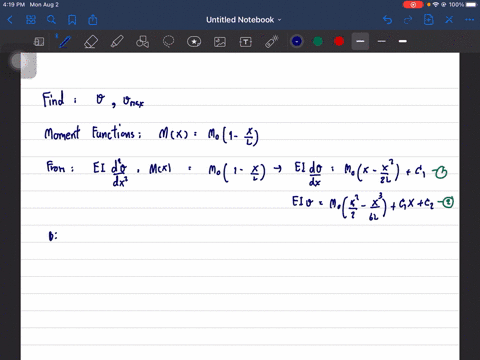 4:19 PM Mon Aug 2
100%
Untitled Notebook
Find : v , vmax
Moment Functions : M(x) = M₀(1 - x/L)
From : EI d²v/dx² = M(x) = M₀(1 - x/L) → EI dv/dx = M₀(x - x²/2L) + C₁ - ①
EI v = M₀(x²/2 - x³/6L) + C₁x + C₂ - ②